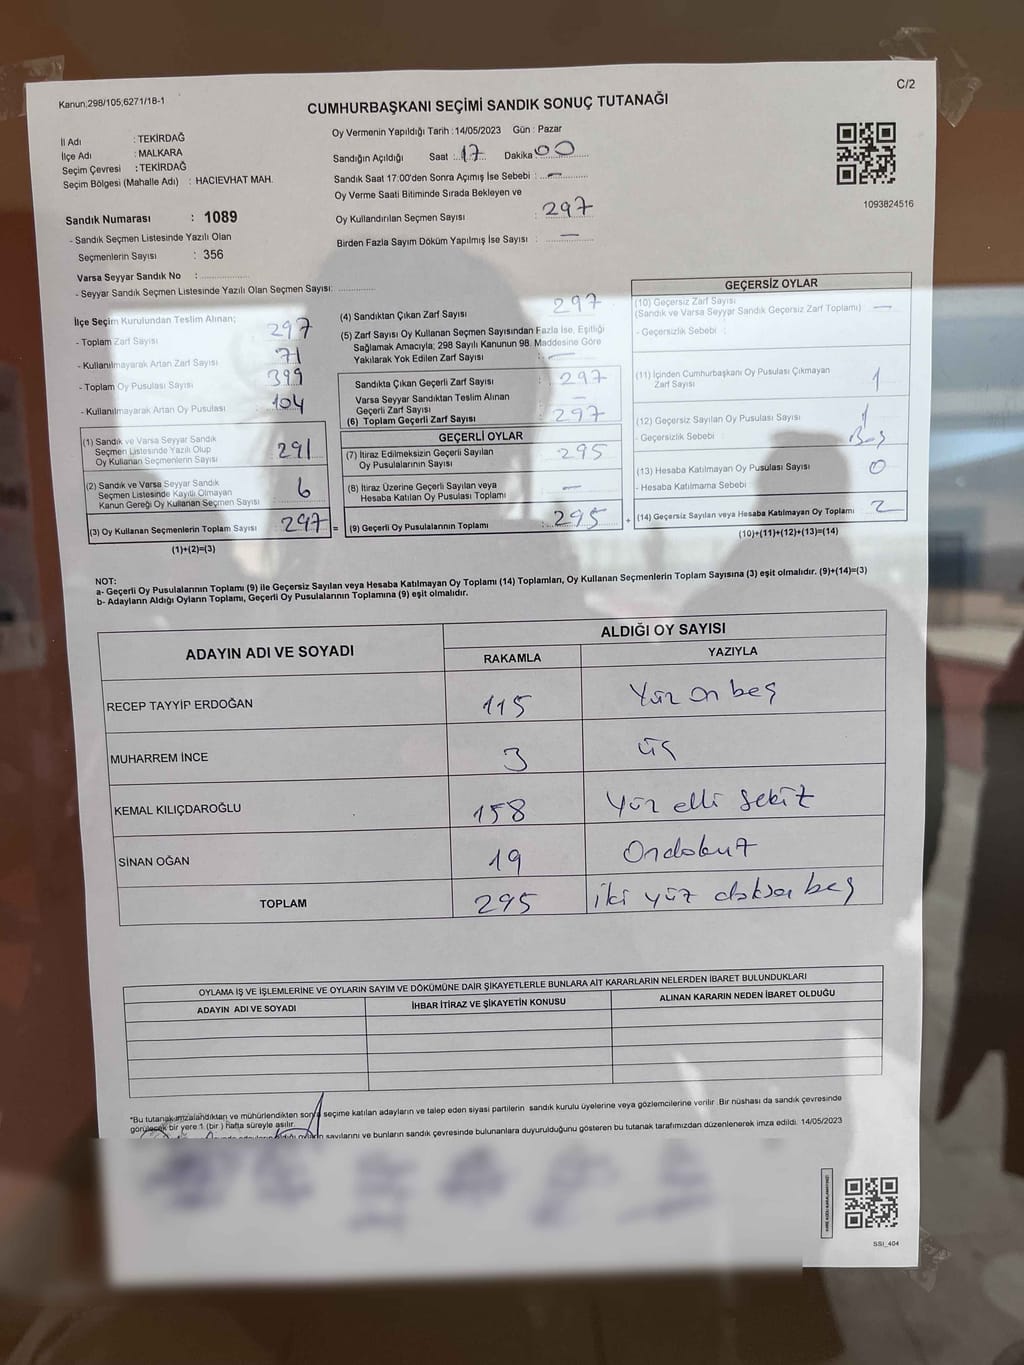 Kanun;298/105;6271/18-1
C/2
CUMHURBAŞKANI SEÇİMİ SANDIK SONUÇ TUTANAĞI
İl Adı : TEKİRDAĞ
İlçe Adı : MALKARA
Seçim Çevresi : TEKİRDAĞ
Seçim Bölgesi (Mahalle Adı) : HACIEVHAT MAH.
Sandık Numarası : 1089
- Sandık Seçmen Listesinde Yazılı Olan
Seçmenlerin Sayısı : 356
Varsa Seyyar Sandık No :
- Seyyar Sandık Seçmen Listesinde Yazılı Olan Seçmen Sayısı:
Oy Vermenin Yapıldığı Tarih : 14/05/2023 Gün : Pazar
Sandığın Açıldığı Saat : 17 Dakika 00
Sandık Saat 17:00'den Sonra Açımış İse Sebebi : —
Oy Verme Saati Bitiminde Sırada Bekleyen ve
Oy Kullandırılan Seçmen Sayısı : 297
Birden Fazla Sayım Döküm Yapılmış İse Sayısı : —
1093824516
İlçe Seçim Kurulundan Teslim Alınan;
- Toplam Zarf Sayısı 297
- Kullanılmayarak Artan Zarf Sayısı 71
- Toplam Oy Pusulası Sayısı 399
- Kullanılmayarak Artan Oy Pusulası : 104
(1) Sandık ve Varsa Seyyar Sandık
Seçmen Listesinde Yazılı Olup
Oy Kullanan Seçmenlerin Sayısı : 291
(2) Sandık ve Varsa Seyyar Sandık
Seçmen Listesinde Kayıtlı Olmayan
Kanun Gereği Oy Kullanan Seçmen Sayısı : 6
(3) Oy Kullanan Seçmenlerin Toplam Sayısı : 297 =
(1)+(2)=(3)
(4) Sandıktan Çıkan Zarf Sayısı : 297
(5) Zarf Sayısı Oy Kullanan Seçmen Sayısından Fazla İse, Eşitliği
Sağlamak Amacıyla; 298 Sayılı Kanunun 98. Maddesine Göre
Yakılarak Yok Edilen Zarf Sayısı : —
Sandıkta Çıkan Geçerli Zarf Sayısı : 297
Varsa Seyyar Sandıktan Teslim Alınan
Geçerli Zarf Sayısı : —
(6) Toplam Geçerli Zarf Sayısı : 297
GEÇERLİ OYLAR
(7) İtiraz Edilmeksizin Geçerli Sayılan
Oy Pusulalarının Sayısı : 295
(8) İtiraz Üzerine Geçerli Sayılan veya
Hesaba Katılan Oy Pusulası Toplamı : —
(9) Geçerli Oy Pusulalarının Toplamı : 295 +
GEÇERSİZ OYLAR
(10) Geçersiz Zarf Sayısı
(Sandık ve Varsa Seyyar Sandık Geçersiz Zarf Toplamı) : —
- Geçersizlik Sebebi :
(11) İçinden Cumhurbaşkanı Oy Pusulası Çıkmayan
Zarf Sayısı : 1
(12) Geçersiz Sayılan Oy Pusulası Sayısı : 1
- Geçersizlik Sebebi : Boş
(13) Hesaba Katılmayan Oy Pusulası Sayısı : 0
- Hesaba Katılmama Sebebi :
(14) Geçersiz Sayılan veya Hesaba Katılmayan Oy Toplamı : 2
(10)+(11)+(12)+(13)=(14)
NOT:
a- Geçerli Oy Pusulalarının Toplamı (9) ile Geçersiz Sayılan veya Hesaba Katılmayan Oy Toplamı (14) Toplamları, Oy Kullanan Seçmenlerin Toplam Sayısına (3) eşit olmalıdır. (9)+(14)=(3)
b- Adayların Aldığı Oyların Toplamı, Geçerli Oy Pusulalarının Toplamına (9) eşit olmalıdır.
ADAYIN ADI VE SOYADI
ALDIĞI OY SAYISI
RAKAMLA YAZIYLA
RECEP TAYYİP ERDOĞAN 115 Yüz on beş
MUHARREM İNCE 3 üç
KEMAL KILIÇDAROĞLU 158 Yüz elli sekiz
SİNAN OĞAN 19 Ondokuz
TOPLAM 295 iki yüz doksan beş
OYLAMA İŞ VE İŞLEMLERİNE VE OYLARIN SAYIM VE DÖKÜMÜNE DAİR ŞİKAYETLERLE BUNLARA AİT KARARLARIN NELERDEN İBARET BULUNDUKLARI
ADAYIN ADI VE SOYADI İHBAR İTİRAZ VE ŞİKAYETİN KONUSU ALINAN KARARIN NEDEN İBARET OLDUĞU
*Bu tutanak imzalandıktan ve mühürlendikten sonra seçime katılan adayların ve talep eden siyasi partilerin sandık kurulu üyelerine veya gözlemcilerine verilir. Bir nüshası da sandık çevresinde
görülecek bir yere 1 (bir) hafta süreyle asılır.
oyların sayılarını ve bunların sandık çevresinde bulunanlara duyurulduğunu gösteren bu tutanak tarafımızdan düzenlenerek imza edildi. 14/05/2023
SSI_404